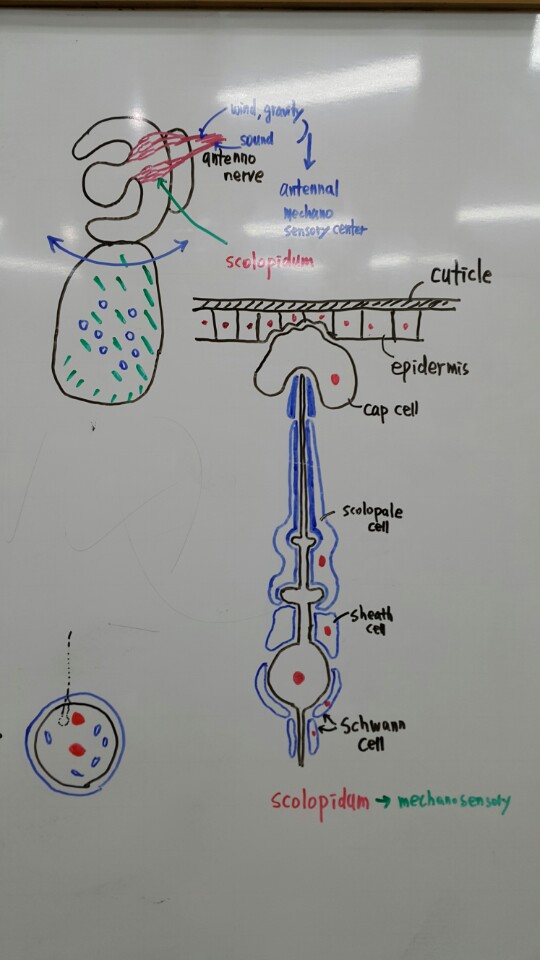 wind, gravity
sound
antenno
nerve
antennal
mechano
sensory center
scolopidum
cuticle
epidermis
cap cell
scolopale
cell
sheath
cell
Schwann
cell
scolopidum → mechanosensory